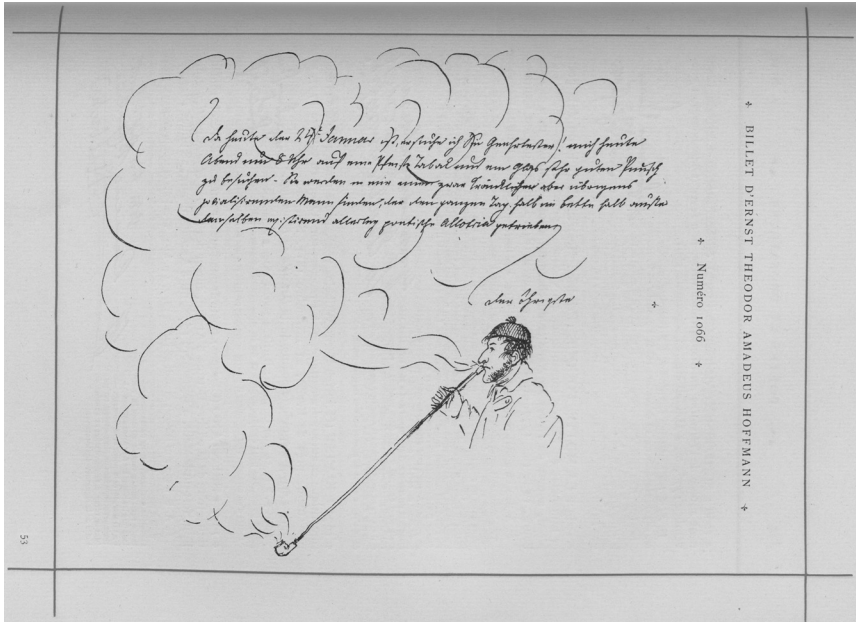 Da heute der 24t Januar ist, ersuche ich Sie Geehrtester! mich heute
Abend um 8 Uhr auf eine Pfeife Tabak und ein Glas sehr guten Punsch
zu besuchen - Sie werden in mir einen zwar kränklichen aber übrigens
jovialisirenden Mann finden, der den ganzen Tag halb im Bette halb außer
demselben existirend allerley poetische Allotria getrieben
Der Ihrigste
✢ BILLET D'ERNST THEODOR AMADEUS HOFFMANN ✢
✢ Numéro 1066 ✢
53